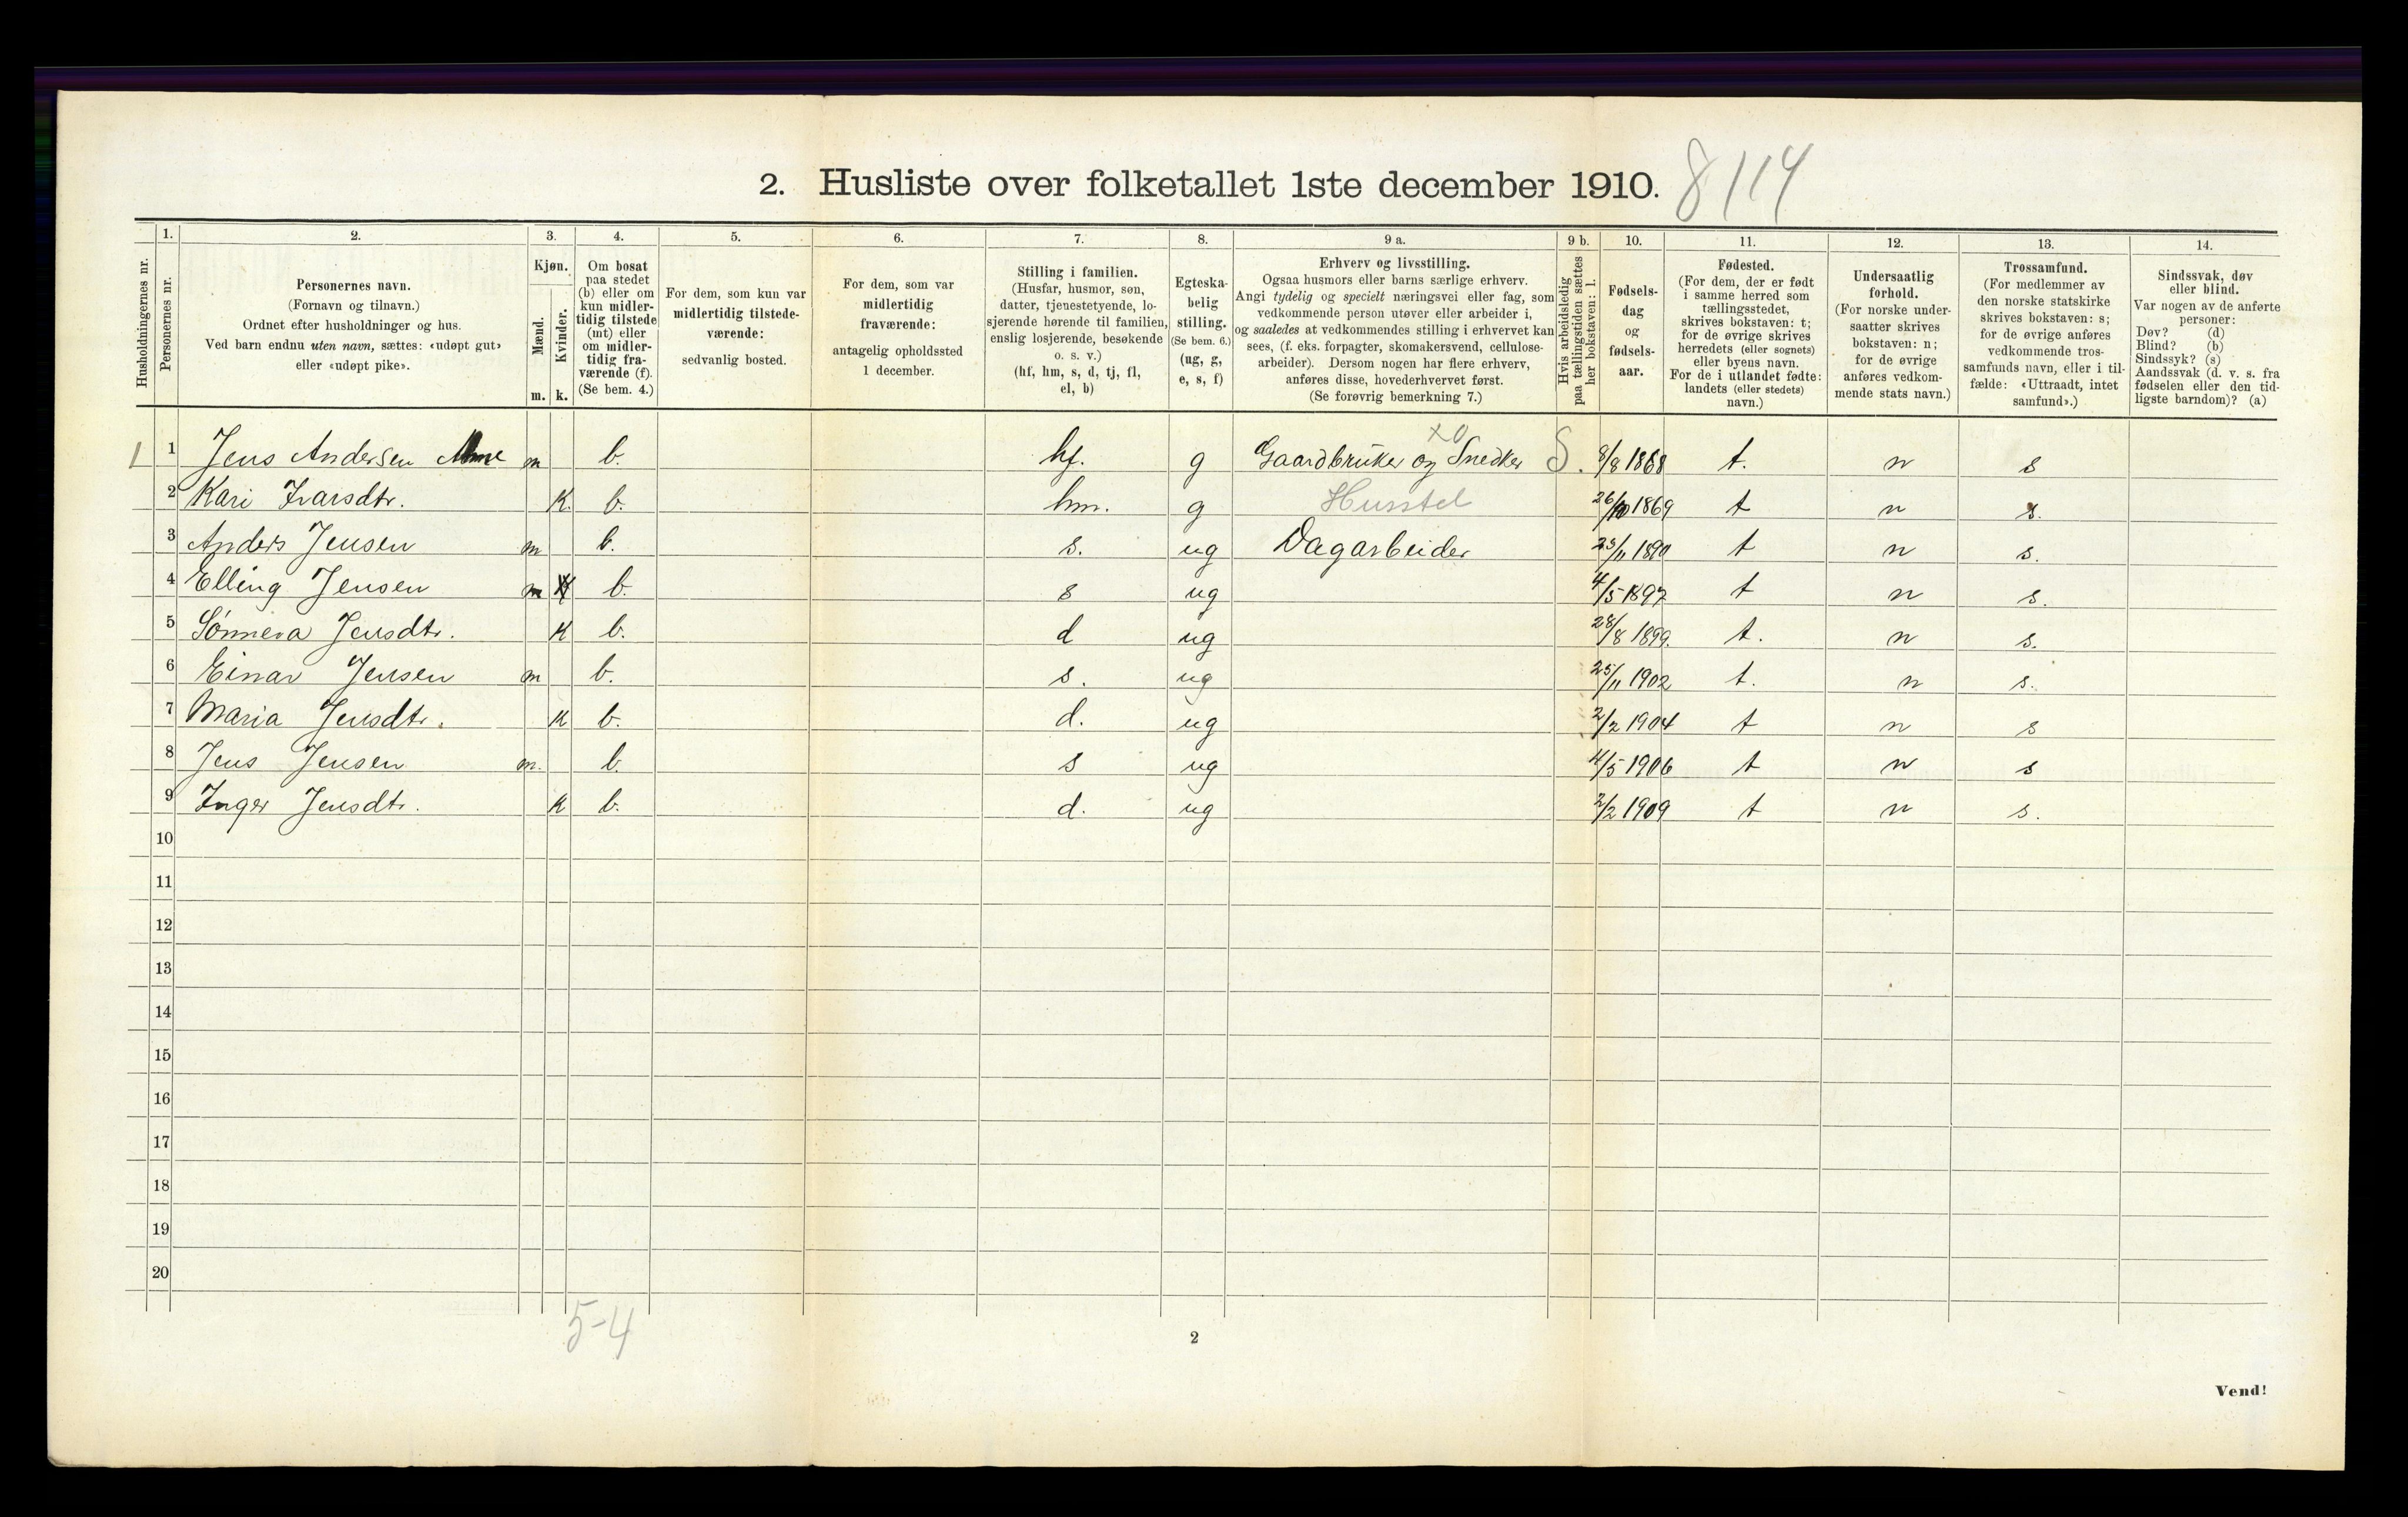 2. Husliste over folketallet 1ste december 1910. 8114
Husholdningernes nr.
1.
Personernes nr.
2.
Personernes navn.
(Fornavn og tilnavn.)
Ordnet efter husholdninger og hus.
Ved barn endnu uten navn, sættes: «udøpt gut»
eller «udøpt pike».
3.
Kjøn.
Mænd.
Kvinder.
m. k.
4.
Om bosat
paa stedet
(b) eller om
kun midler-
tidig tilstede
(mt) eller
om midler-
tidig fra-
værende (f).
(Se bem. 4.)
5.
For dem, som kun var
midlertidig tilstede-
værende:
sedvanlig bosted.
6.
For dem, som var
midlertidig
fraværende:
antagelig opholdssted
1 december.
7.
Stilling i familien.
(Husfar, husmor, søn,
datter, tjenestetyende, lo-
sjerende hørende til familien,
enslig losjerende, besøkende
o. s. v.)
(hf, hm, s, d, tj, fl,
el, b)
8.
Egteska-
belig
stilling.
(Se bem. 6.)
(ug, g,
e, s, f)
9 a.
Erhverv og livsstilling.
Ogsaa husmors eller barns særlige erhverv.
Angi tydelig og specielt næringsvei eller fag, som
vedkommende person utøver eller arbeider i,
og saaledes at vedkommendes stilling i erhvervet kan
sees, (f. eks. forpagter, skomakersvend, cellulose-
arbeider). Dersom nogen har flere erhverv,
anføres disse, hovederhvervet først.
(Se forøvrig bemerkning 7.)
9 b.
Hvis arbeidsledig
paa tællingstiden sættes
her bokstaven: l.
10.
Fødsels-
dag
og
fødsels-
aar.
11.
Fødested.
(For dem, der er født
i samme herred som
tællingsstedet,
skrives bokstaven: t;
for de øvrige skrives
herredets (eller sognets)
eller byens navn.
For de i utlandet fødte:
landets (eller stedets)
navn.)
12.
Undersaatlig
forhold.
(For norske under-
saatter skrives
bokstaven: n;
for de øvrige
anføres vedkom-
mende stats navn.)
13.
Trossamfund.
(For medlemmer av
den norske statskirke
skrives bokstaven: s;
for de øvrige anføres
vedkommende tros-
samfunds navn, eller i til-
fælde: «Uttraadt, intet
samfund».)
14.
Sindssvak, døv
eller blind.
Var nogen av de anførte
personer:
Døv? (d)
Blind? (b)
Sindssyk? (s)
Aandssvak (d. v. s. fra
fødselen eller den tid-
ligste barndom)? (a)
x0
1 1 Jens Andersen m b. hf. g Gaardbruker og Snedker S. 8/8 1868 t. n s
2 Kari Ivarsdtr. K. b. hm. g Husstel 26/10 1869 t n s.
3 Anders Jensen m b. s. ug Dagarbeider 23/11 1890 t n s.
4 Elling Jensen m b. s ug 4/5 1897 t n s.
5 Sønneva Jensdtr. K b. d ug 28/8 1899. t. n s.
6 Einar Jensen m b. s. ug 25/11 1902 t. n s.
7 Maria Jensdtr. K b. d. ug 2/2 1904 t n s
8 Jens Jensen m. b. s ug 4/5 1906 t n s
9 Inger Jensdtr. K b. d. ug 2/2 1909 t n s.
10
11
12
13
14
15
16
17
18
19
20
5-4
2
Vend!